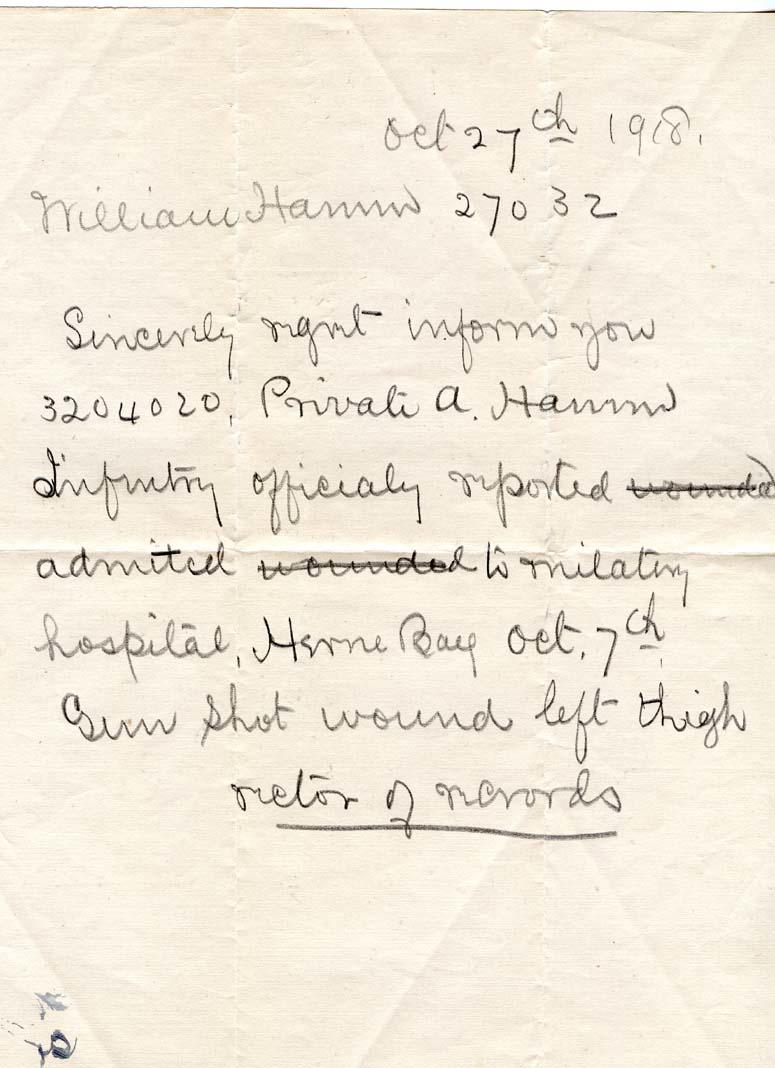 Oct 27th 1918.
William Hamm 27032
Sincerely regret inform you
3204020, Private A. Hamm
Infintry officialy reported wounded
admited wounded to milatery
hospital, Herne Bay Oct. 7th
Gun Shot wound left thigh
rector of records